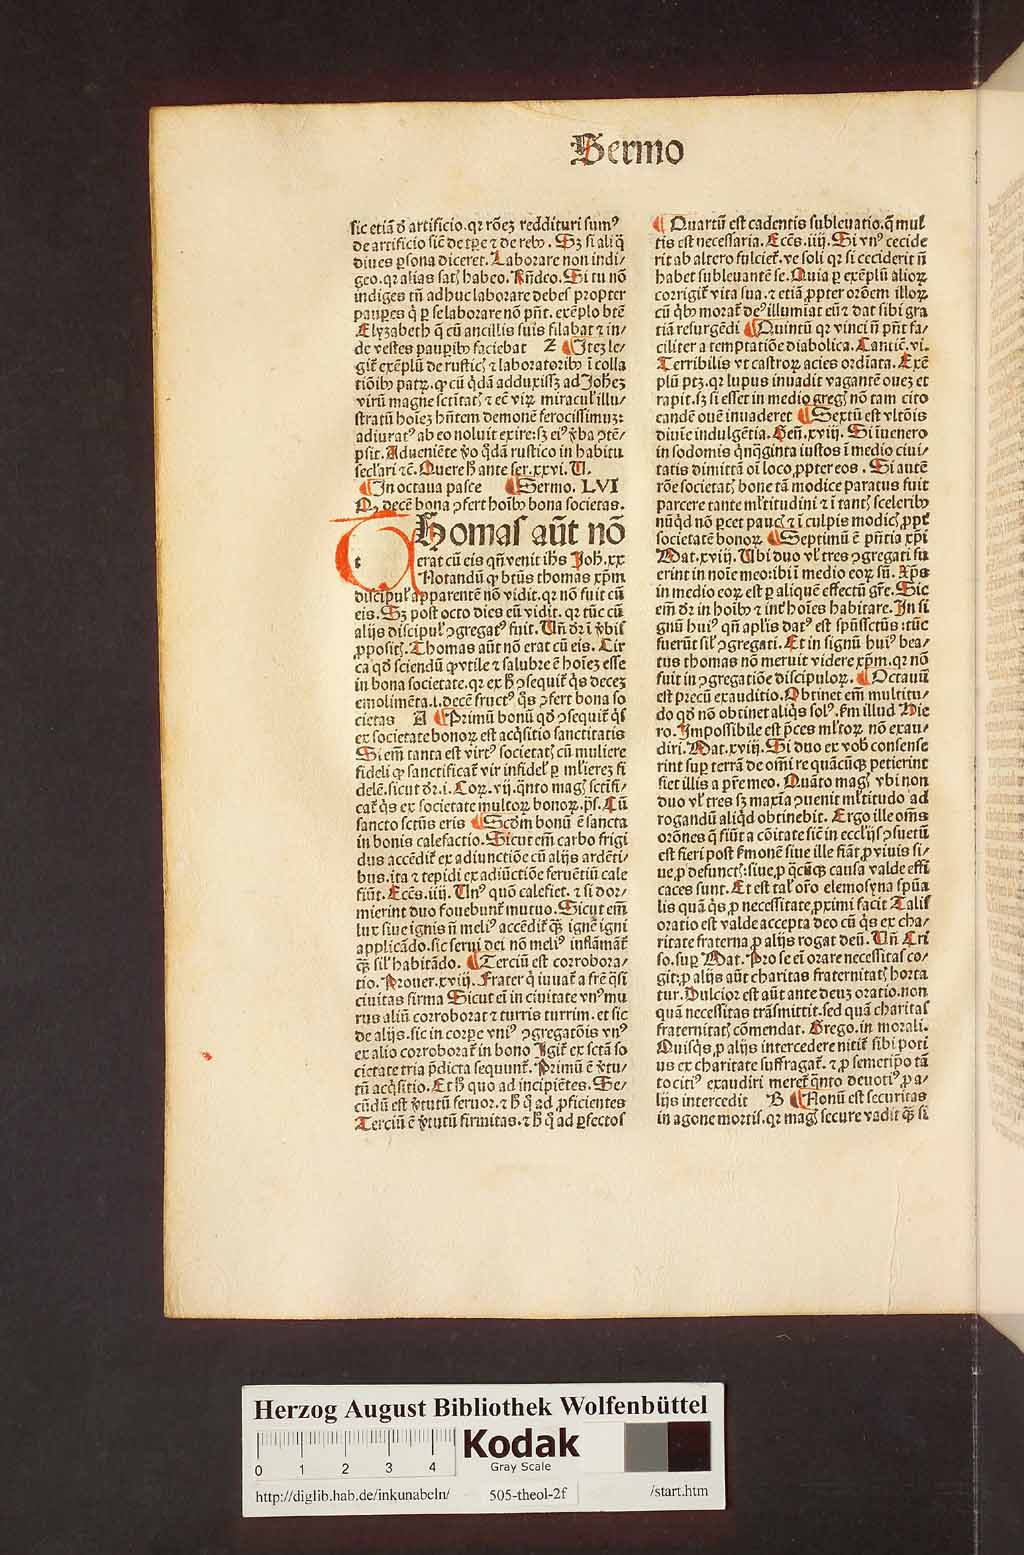 Sermo
sic etiā d' artificio. qꝛ rōeꝫ reddituri sumꝰ
de artificio sic̄ de tꝑe ⁊ de rebꝰ. Sꝫ si aliq̄
diues ꝑsona diceret. Laborare non indi/
geo. qꝛ alias satꝭ habeo. Rn̄deo. Si tu nō
indiges tn̄ adhuc laborare debes propter
pauꝑes q̇ ꝑ se laborare nō pn̄t. exēplo btē
Elyzabeth q̄ cū ancillis suis filabat ⁊ in/
de vestes pauꝑibꝰ faciebat Z ¶ Iteꝫ le/
git̄ exēplū de rusticꝭ ⁊ laboratoribꝰ ī colla
tiōibꝰ patꝝ. ꝙ cū q̇dā adduxissꝫ ad Joheꝫ
virū magne sctītatꝭ ⁊ eē virꝝ miracul' illu/
stratū hoieꝫ hn̄tem demonē ferocissimuꝫ:
adiuratꝰ ab eo noluit exire: sꝫ eiꝰ v̓ba ꝯtē/
psit. Adueniēte v̓o q̇dā rustico in habitu
secl'ari ⁊c̄. Quere h̓ ante ser. xxvi. V.
¶ In octaua pasce ¶ Sermo. LVI
Qꝫ decē bona ꝯfert hoībꝰ bona societas.
Thomas aūt nō
t
erat cū eis qn̄ venit ihs Joh. xx
Notandū ꝙ btūs thomas xp̄m
discipul' apparentē nō vidit. qꝛ nō fuit cū
eis. Sꝫ post octo dies eū vidit. qꝛ tūc cū
alijs discipul' ꝯgregatꝰ fuit. Vn̄ dr̄ ī v̓bis
ꝓpositꝭ. Thomas aūt nō erat cū eis. Cir
ca qd̓ sciendū ꝙ vtile ⁊ salubre ē hoieꝫ esse
in bona societate. qꝛ ex h̓ ꝯsequit̄ q̇s deceꝫ
emolimēta. i. decē fructꝰ q̇s ꝯfert bona so
cietas A ¶ Primū bonū qd̓ ꝯsequit̄ q̇s
ex societate bonoꝝ est acq̇sitio sanctitatis
Si em̄ tanta est virtꝰ societatꝭ cū muliere
fideli ꝙ sanctificat̄ vir infidel' ꝑ ml'iereꝫ fi
delē. sicut dr̄. i. Coꝝ. vij. q̇nto magꝭ sctīfi/
cat̄ q̇s ex societate multoꝝ bonoꝝ. ps̄. Cū
sancto sctūs eris ¶ Scd̓m bonū ē sancta
in bonis calefactio. Sicut em̄ carbo frigi
dus accēdit̄ ex adiunctiōe cū alijs ardēti/
bus. ita ⁊ tepidi ex adiūctiōe feruētiū cale
fiūt. Ecc̄s. iiij. Vnꝰ quō calefiet. ⁊ si dor/
mierint duo fouebunt̄ mutuo. Sicut em̄
lux siue ignis n̄ meliꝰ accēdit̄ ꝙꝫ igne igni
applicādo. sic serui dei nō meliꝰ inflāmāt̄
ꝙꝫ sil' habitādo. ¶ Terciū est corrobora/
tio. Prouer. xviij. Frater q̇ iuuat̄ a frē q̄si
ciuitas firma Sicut em̄ in ciuitate vnꝰ mu
rus aliū corroborat ⁊ turris turrim. et sic
de alijs. sic in corꝑe vniꝰ ꝯgregatōis vnꝰ
ex alio corroborat̄ in bono Igit̄ ex sctā so
cietate tria p̄dicta sequunt̄. Primū ē v̓tu/
tū acq̇sitio. Et h̓ quo ad incipiētes. Se/
cūdū est v̓tutū feruor. ⁊ h̓ q̇ ad ꝓficientes
Terciū ē v̓tutū firmitas. ⁊ h̓ q̇ ad ꝑfectos
¶ Quartū est cadentis subleuatio. q̄ mul
tis est necessaria. Ecc̄s. iiij. Si vnꝰ cecide
rit ab altero fulciet̄. ve soli qꝛ si ceciderit n̄
habet subleuantē se. Quia ꝑ exēplū alioꝝ
corrigit̄ vita sua. ⁊ etiā ꝓpter orōem illoꝝ
cū q̇bꝰ morat̄ deꝰ illumiat eū ⁊ dat sibi gra
tiā resurgēdi ¶ Quintū qꝛ vinci n̄ pn̄t fa/
ciliter a temptatiōe diabolica. Cantic̄. vi.
Terribilis vt castroꝝ acies ordīata. Exē
plū ptꝫ. qꝛ lupus inuadit vagantē oueꝫ et
rapit. sꝫ si esset in medio gregꝭ nō tam cito
eandē ouē inuaderet ¶ Sextū est vltōis
diuīe indulgētia. Gen̄. xviij. Si īuenero
in sodomis q̇nq̄ginta iustos ī medio ciui/
tatis dimittā oī loco ꝓpter eos. Si autē
rōe societatꝭ bone tā modice paratus fuit
parcere tante ml'titudini ⁊ ī tantꝭ sceleribꝰ
nūqd̓ nō ꝑcet paucꝭ ⁊ ī culpis modicꝭ ꝓpt̄
societatē bonoꝝ. ¶ Septimū ē pn̄tia xp̄i
Mat. xviij. Vbi duo vl' tres ꝯgregati fu
erint in noīe meo: ibi ī medio eoꝝ sū. Xp̄s
in medio eoꝝ est ꝑ aliquē effectū gr̄e. Sic
em̄ dr̄ in hoībꝰ ⁊ int̄ hoīes habitare. In si
gnū huiꝰ qn̄ apl'is datꝰ est spūssctūs: tūc
fuerūt sil' ꝯgregati. Et in signū huiꝰ bea/
tus thomas nō meruit videre xp̄m. qꝛ nō
fuit in ꝯgregatiōe discipuloꝝ. ¶ Octauū
est precū exauditio. Obtinet em̄ multitu/
do qd̓ nō obtinet aliq̇s solꝰ. ẜm illud Hie
ro. Impossibile est p̄ces ml'toꝝ nō exau/
diri. Mat. xviij. Si duo ex vob̓ consense
rint suꝑ terrā de om̄i re quācūqꝫ petierint
fiet illis a pr̄e meo. Quāto magꝭ vbi non
duo vl' tres sꝫ maxīa ꝯuenit ml'titudo ad
rogandū aliqd̓ obtinebit. Ergo ille om̄s
orōnes q̄ fiūt a cōitate sic̄ in eccl'ijs ꝯsuetū
est fieri post ẜmonē siue ille fiāt ꝓ viuis si/
ue ꝓ defunctꝭ: siue ꝓ q̄cūqꝫ causa valde effi
caces sunt. Et est tal' or̄o elemosyna spūa
lis quā q̇s ꝓ necessitate ꝓximi facit Talis
oratio est valde accepta deo cū q̇s ex cha/
ritate fraterna ꝓ alijs rogat deū. Vn̄ Cri
so. suꝑ Mat. Pro se em̄ orare necessitas co/
git: ꝓ alijs aūt charitas fraternitatꝭ horta
tur. Dulcior est aūt ante deuꝫ oratio. non
quā necessitas trāsmittit. sed quā charitas
fraternitatꝭ cōmendat. Grego. in morali.
Quisq̇s ꝓ alijs intercedere nitit̄ sibi poti
us ex charitate suffragat̄. ⁊ ꝓ semetip̄o tā
to citiꝰ exaudiri meret̄ q̇nto deuotiꝰ ꝓ a/
lijs intercedit B ¶ Nonū est securitas
in agone mortis. qꝛ magꝭ secure vadit ꝙꝫ si
Herzog August Bibliothek Wolfenbüttel
0 1 2 3 4
Kodak
Gray Scale
http://diglib.hab.de/inkunabeln/ 505-theol-2f /start.htm